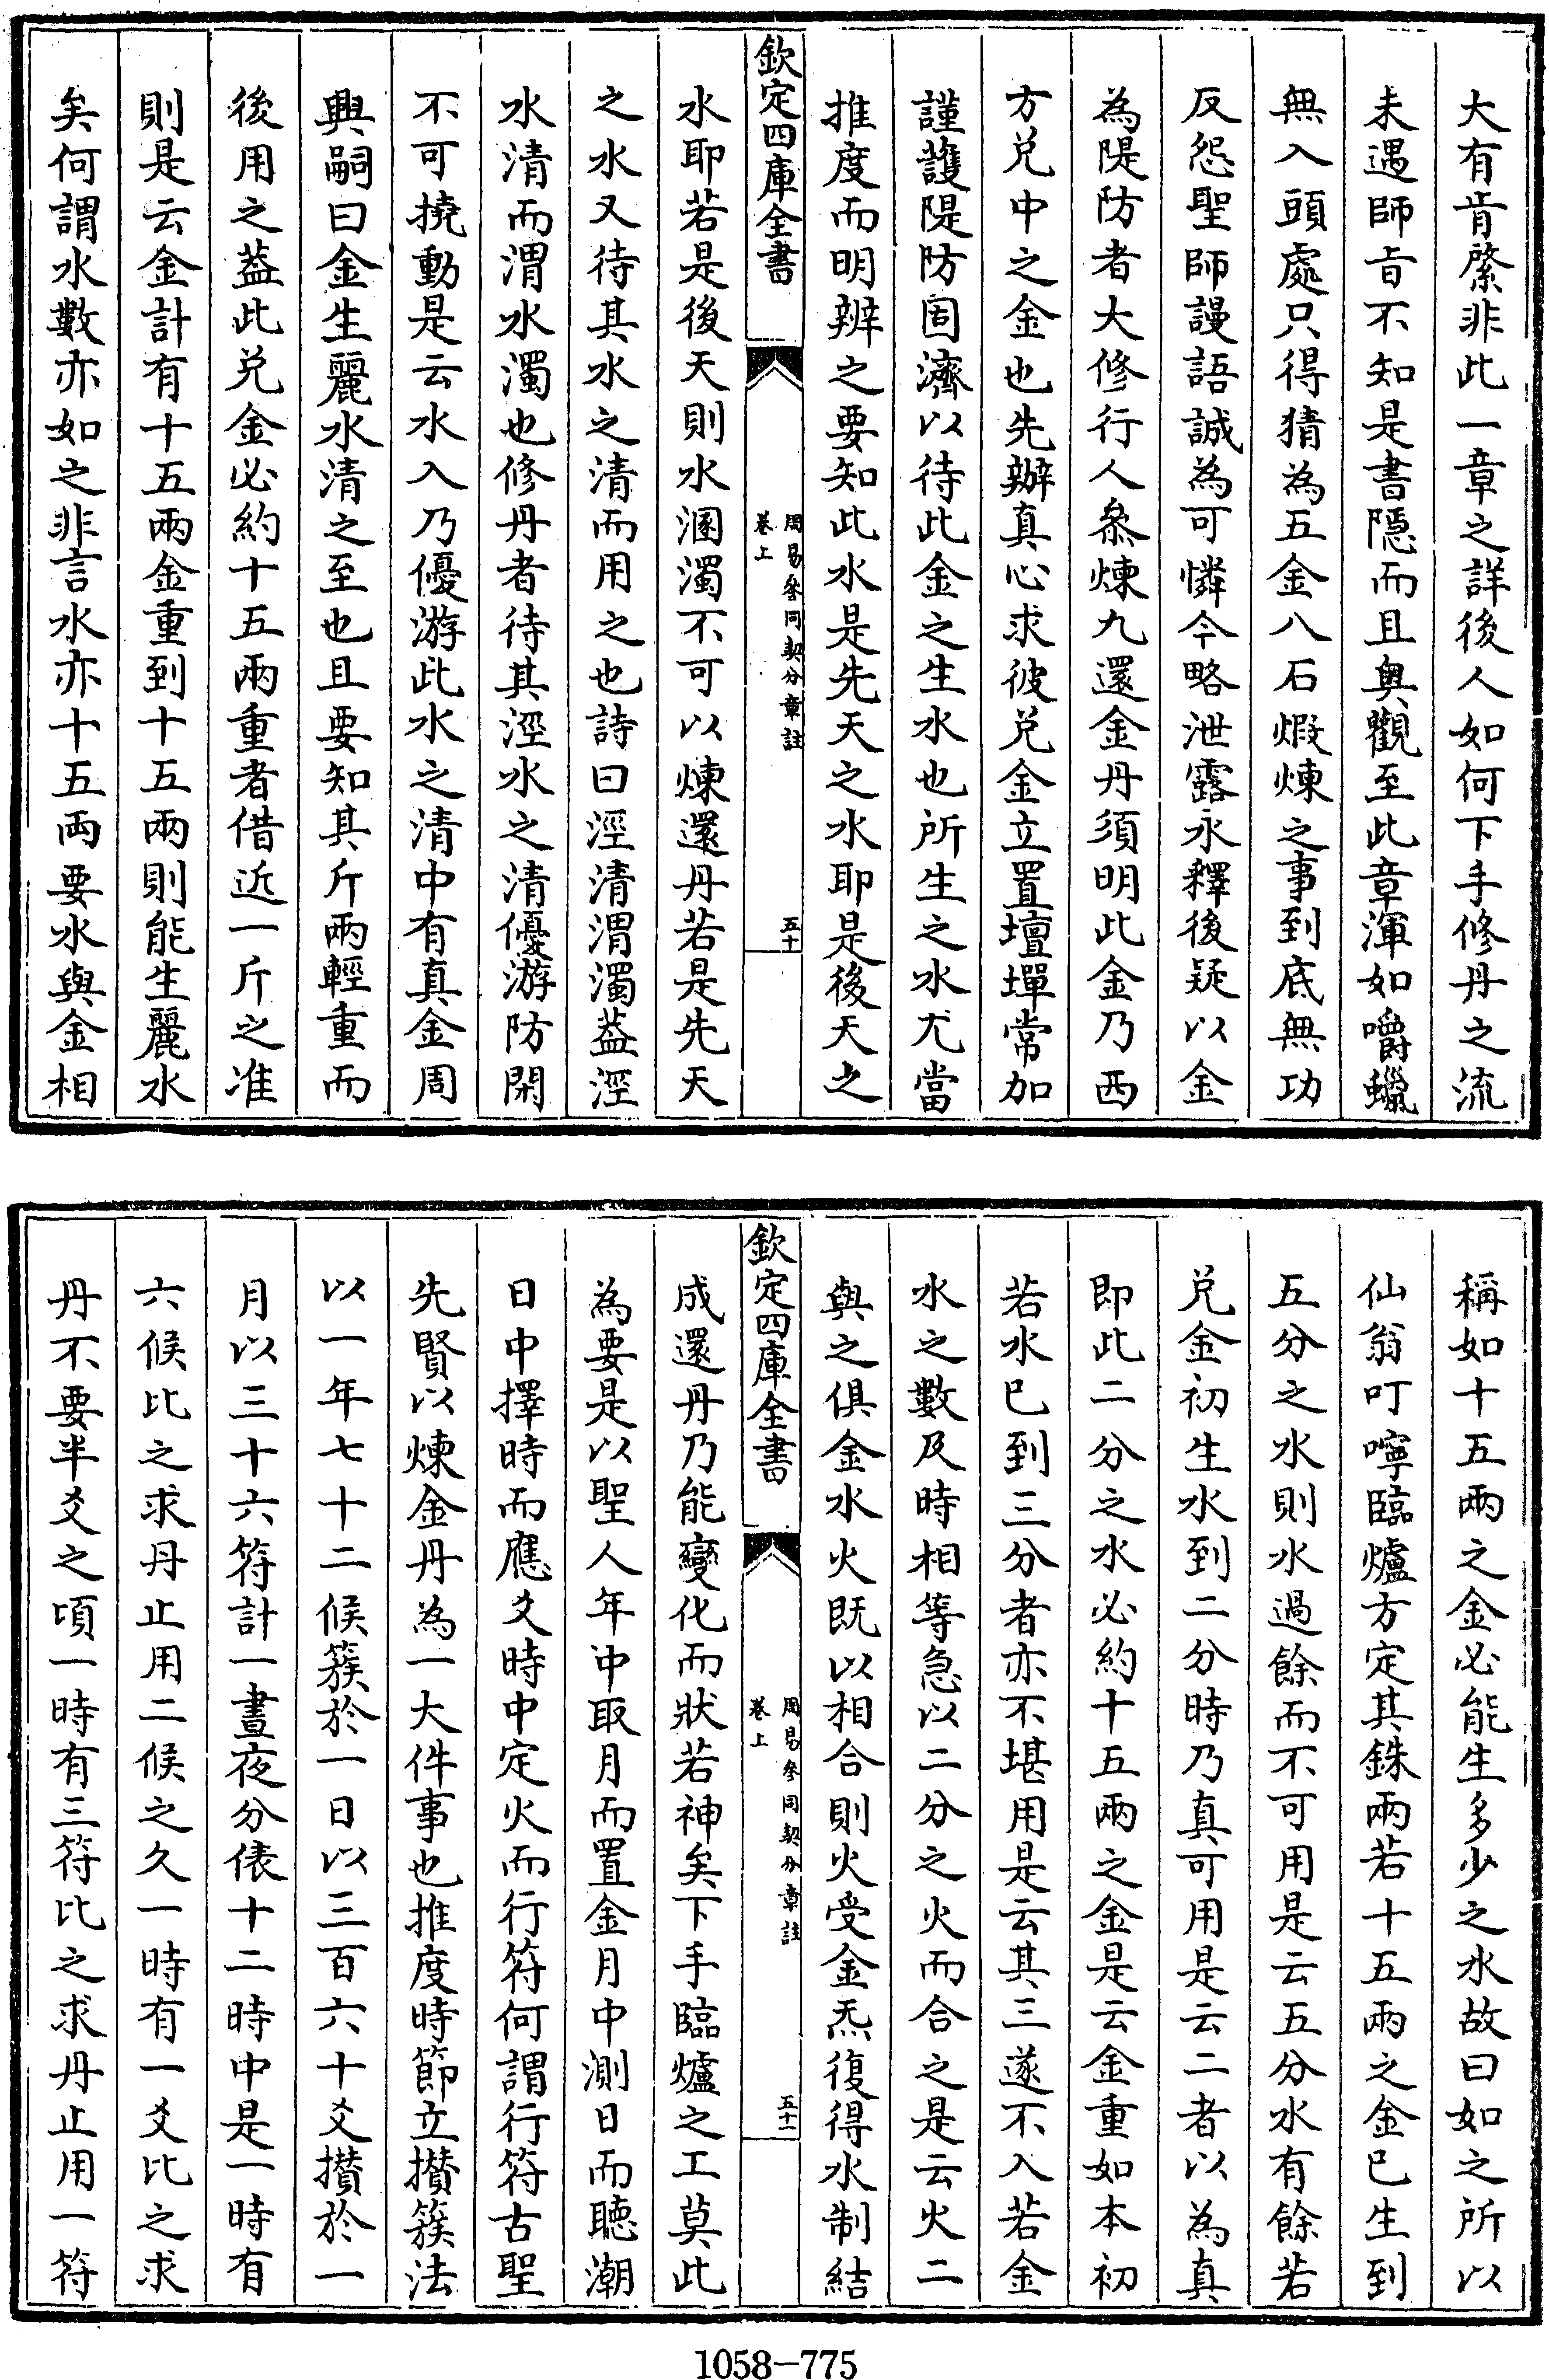 大有肯綮非此一章之詳後人如何下手修丹之流
未遇師㫖不知是書隱而且奥觀至此章渾如嚼蠟
無入頭處只得猜為五金八石煅煉之事到底無功
反怨聖師謾語誠為可憐今略泄露永釋後疑以金
為隄防者大修行人叅煉九還金丹須明此金乃西
方兑中之金也先辦真心求彼兑金立置壇墠常加
謹護隄防固濟以待此金之生水也所生之水尤當
推度而明辨之要知此水是先天之水耶是後天之
欽定四庫全書
周易參同契分章註
卷上
五十
水耶若是後天則水溷濁不可以煉還丹若是先天
之水又待其水之清而用之也詩曰涇清渭濁葢涇
水清而渭水濁也修丹者待其涇水之清優游防閑
不可撓動是云水入乃優游此水之清中有真金周
興嗣曰金生麗水清之至也且要知其斤兩輕重而
後用之葢此兑金必約十五兩重者借近一斤之准
則是云金計有十五兩金重到十五兩則能生麗水
矣何謂水數亦如之非言水亦十五両要水與金相
稱如十五兩之金必能生多少之水故曰如之所以
仙翁叮嚀臨爐方定其銖兩若十五兩之金已生到
五分之水則水過餘而不可用是云五分水有餘若
兑金初生水到二分時乃真可用是云二者以為真
即此二分之水必約十五兩之金是云金重如本初
若水已到三分者亦不堪用是云其三遂不入若金
水之數及時相等急以二分之火而合之是云火二
與之俱金水火既以相合則火受金炁復得水制結
欽定四庫全書
周易參同契分章註
卷上
五十一
成還丹乃能變化而狀若神矣下手臨爐之工莫此
為要是以聖人年中取月而置金月中測日而聽潮
日中擇時而應爻時中定火而行符何謂行符古聖
先賢以煉金丹為一大件事也推度時節立攅簇法
以一年七十二候簇於一日以三百六十爻攅於一
月以三十六符計一晝夜分俵十二時中是一時有
六候比之求丹止用二候之久一時有一爻比之求
丹不要半爻之頃一時有三符比之求丹止用一符
1058-775